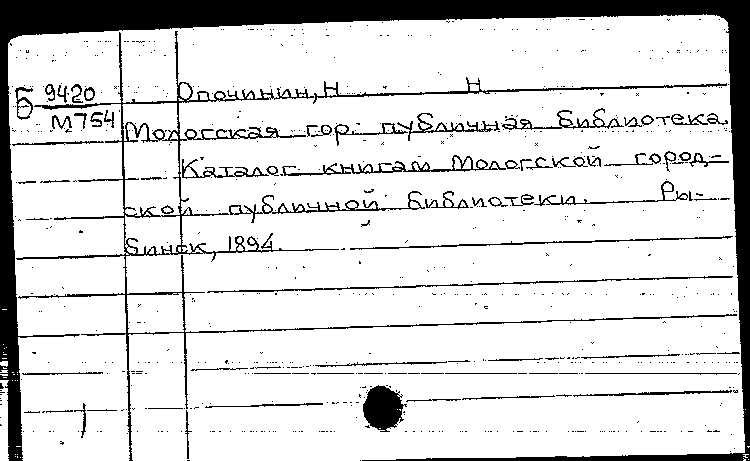 Б 9420 Опочинин, Н Н
М754
Мологская гор. публичная библиотека.
Каталог книгам Мологской город-
ской публичной библиотеки. Ры-
бинск, 1894.